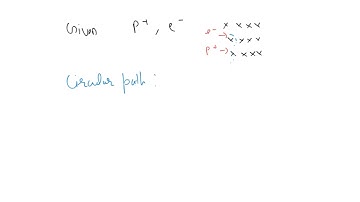 Given p+, e-
x x x x
e- → x x x x
p+ → x x x x
Circular path :